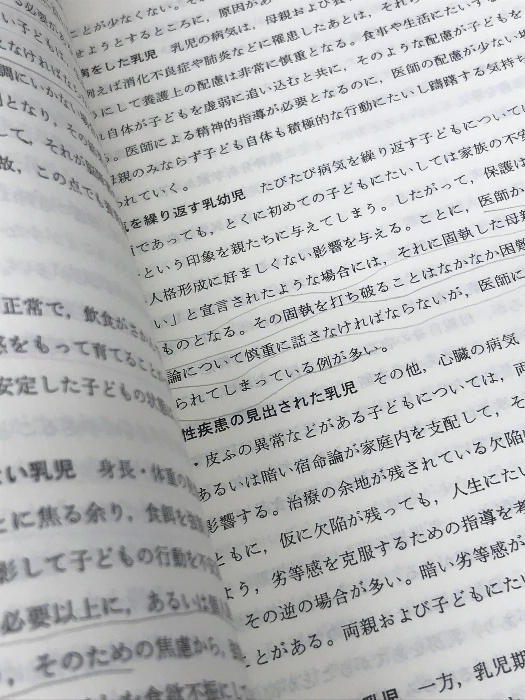 必要が
正常で，飲食がさ
をもって育てること
安定した子どもの
い乳児　身長・体重
とに焦る余り，食餌を
影して子どもの行動を
必要以上に，あるいは
，そのための焦慮から，
ことが少なくない。そ
せようとするところに，原因があ
をした乳児　乳児の病気は，母親および
例えば消化不良症や肺炎などに罹患したあとは，それ
にして養護上の配慮は非常に慎重となる。食事や生活にたいする
自体が子どもを虚弱に追い込むと共に，そのような配慮が子どもを
。医師による精神的指導が必要となるのに，医師の配慮が少ない場
母親のみならず子ども自体も積極的な行動にたいし躊躇する気持ち
われていく。
を繰り返す乳幼児　たびたび病気を繰り返す子どもについて
であっても，とくに初めての子どもにたいしては家族の不安
という印象を親たちに与えてしまう。したがって，保護は
人格形成に好ましくない影響を与える。ことに，医師か
い」と宣言されたような場合には，それに固執した母親
ものとなる。その固執を打ち破ることはなかなか困難
論について慎重に話さなければならないが，医師に
られてしまっている例が多い。
性疾患の見出された乳児　その他，心臓の病気
・皮ふの異常などがある子どもについては，両
あるいは暗い宿命論が家庭内を支配して，そ
影響する。治療の余地が残されている欠陥
ともに，仮に欠陥が残っても，人生にたい
よう，劣等感を克服するための指導を考
その逆の場合が多い。暗い劣等感が
ことがある。両親および子どもにたい
乳児　一方，乳児期